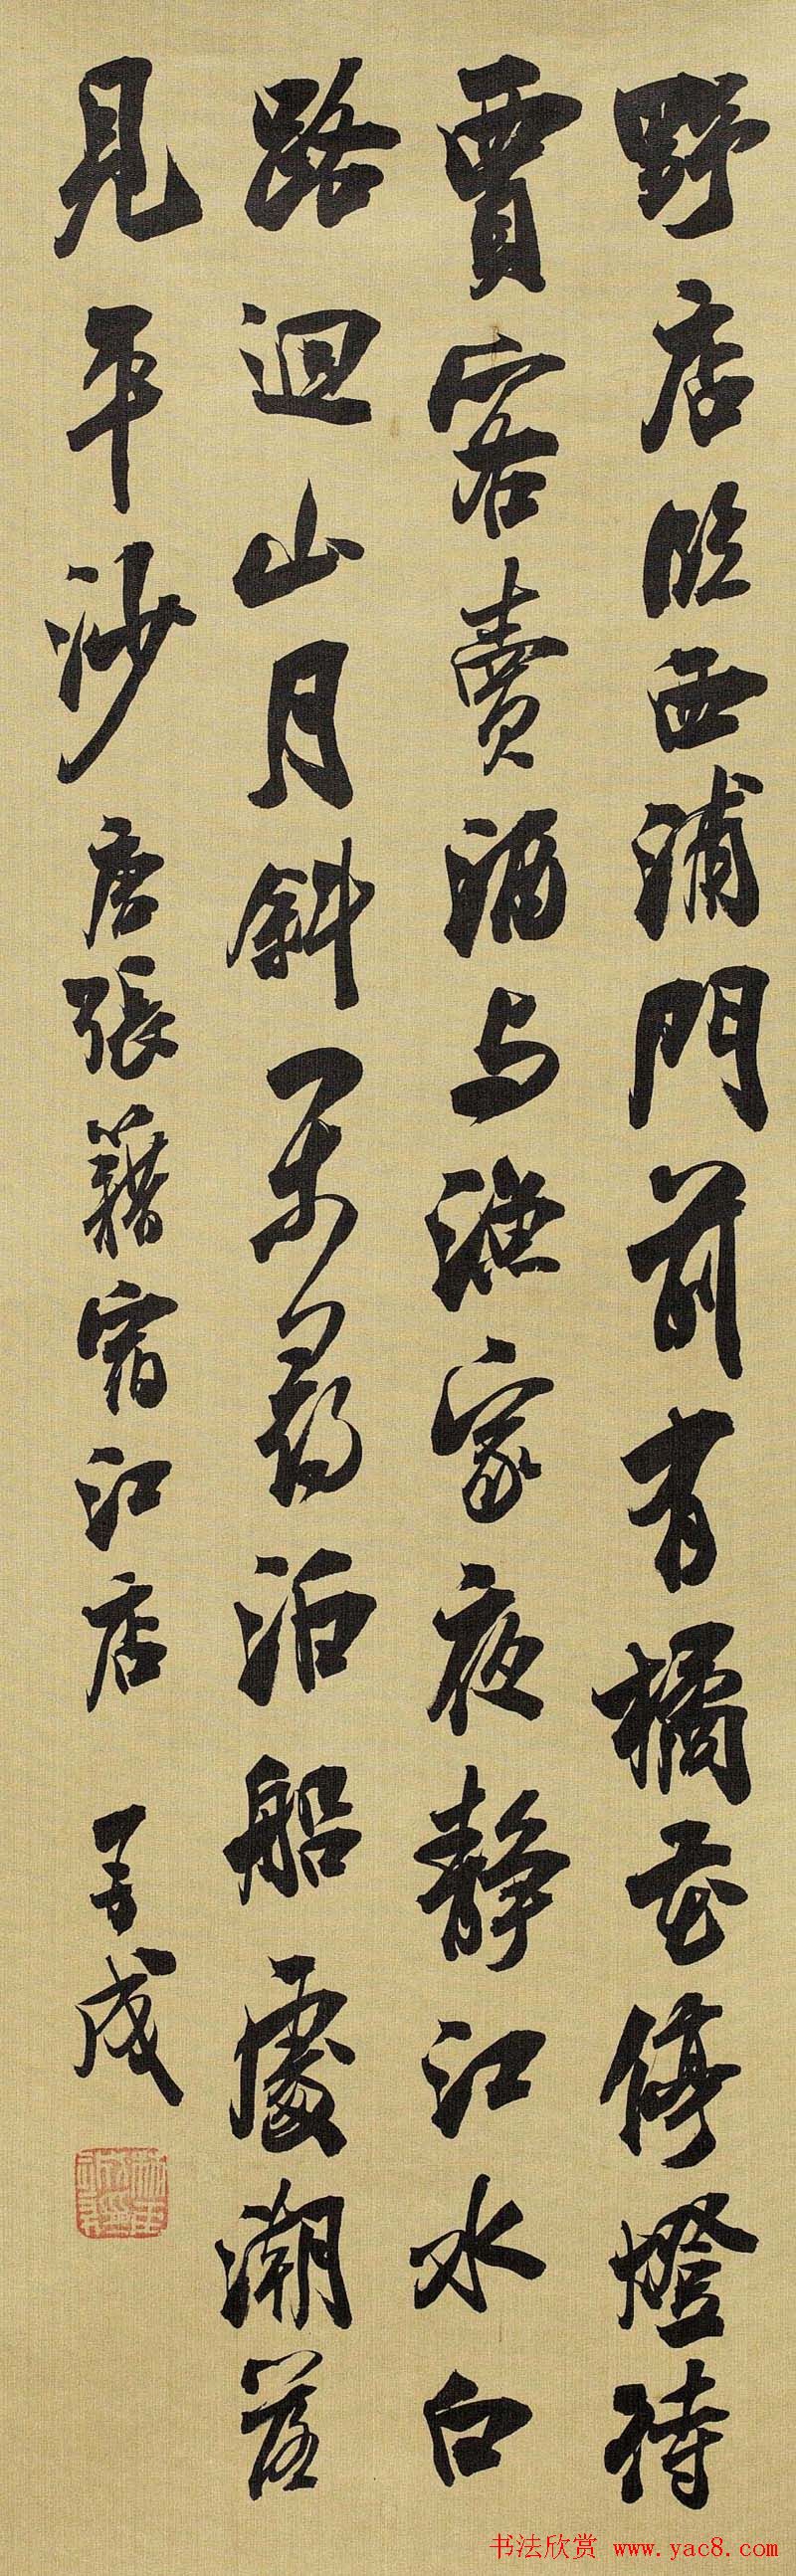 野店臨西浦門前有橘花停燈待
賈客賣酒与漁家夜靜江水白
路迴山月斜閒尋泊船處潮落
見平沙 唐張籍宿江店 成
书法欣赏 www.yac8.com